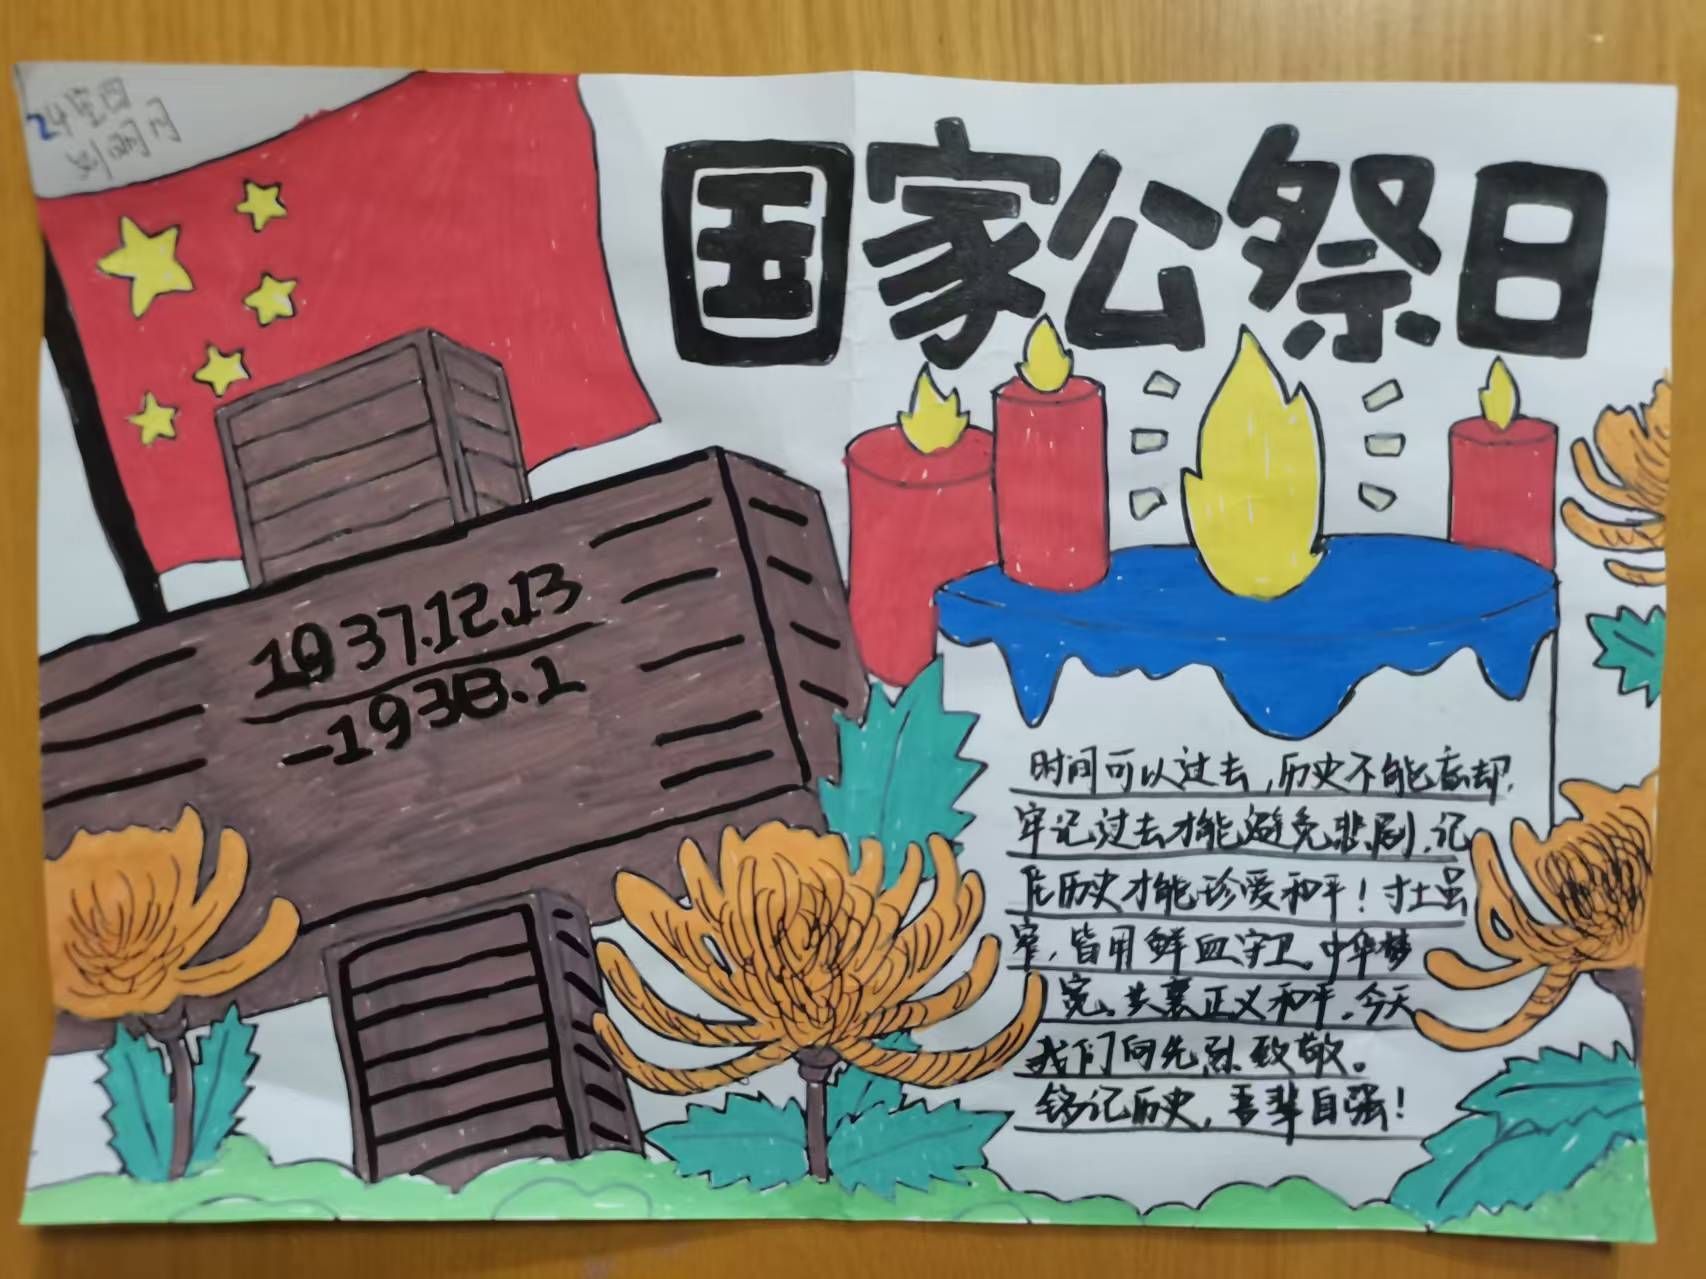 国家公祭日
1937.12.13
-1938.1
时间可以过去，历史不能忘却，
牢记过去才能避免悲剧，记
住历史才能珍爱和平！寸土虽
窄，皆用鲜血守卫，中华梦
宽，共襄正义和平。今天
我们向先烈致敬。
铭记历史，吾辈自强！